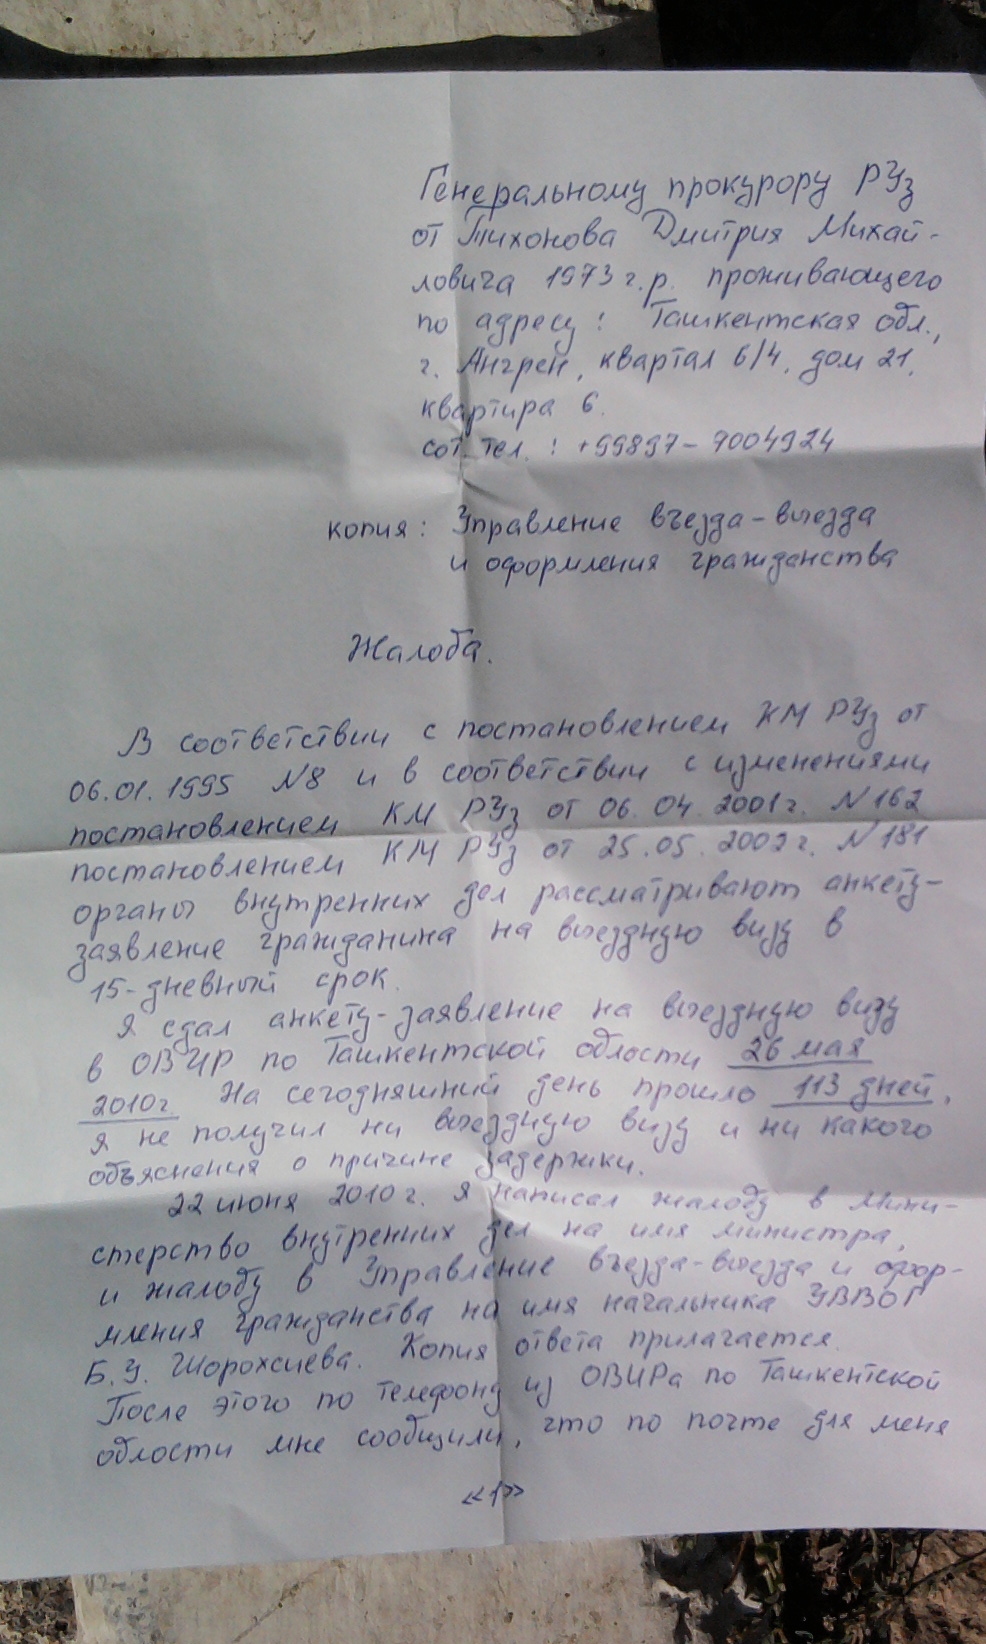 Генеральному прокурору РУз
от Тихонова Дмитрия Михай-
ловича 1973 г.р. проживающего
по адресу: Ташкентская обл.,
г. Ангрен, квартал 6/4, дом 21,
квартира 6.
сот. тел. : +99897-7004924
копия: Управление въезда-выезда
и оформления гражданства
Жалоба.
В соответствии с постановлением КМ РУз от
06.01.1995 N8 и в соответствии с изменениями
постановлением КМ РУз от 06.04.2001г. N162
постановлением КМ РУз от 25.05.2002г. N181
органы внутренних дел рассматривают анкету-
заявление гражданина на выездную визу в
15-дневный срок.
Я сдал анкету-заявление на выездную визу
в ОВИР по Ташкентской области 26 мая
2010г. На сегодняшний день прошло 113 дней,
я не получил ни выездную визу и ни какого
объяснения о причине задержки.
22 июня 2010г. я написал жалобу в Мини-
стерство внутренних дел на имя министра,
и жалобу в Управление въезда-выезда и офор-
мления гражданства на имя начальника УВВОГ
Б.У. Шорохсиева. Копия ответа прилагается.
После этого по телефону из ОВИРа по Ташкентской
области мне сообщили, что по почте для меня
«1»